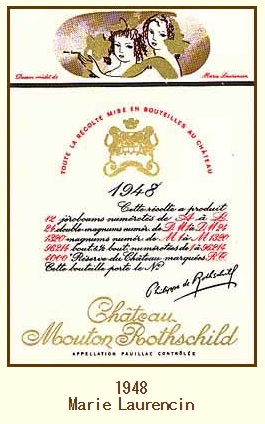 Dessin inédit de Marie Laurencin
TOUTE LA RÉCOLTE MISE EN BOUTEILLES AU CHÂTEAU
1948
Cette récolte a produit
12 jéroboams numérotés de A à L
24 double magnums numér. de D.M1 à D.M24
1320 magnums numér. de M1 à M1320
96214 bout. & ½ bout. numérotées de 1 à 96214
4000 "Réserve du Château" marquées R.C.
Cette bouteille porte le No
Philippe de Rothschild
Château
Mouton Rothschild
APPELLATION PAUILLAC CONTRÔLÉE
1948
Marie Laurencin